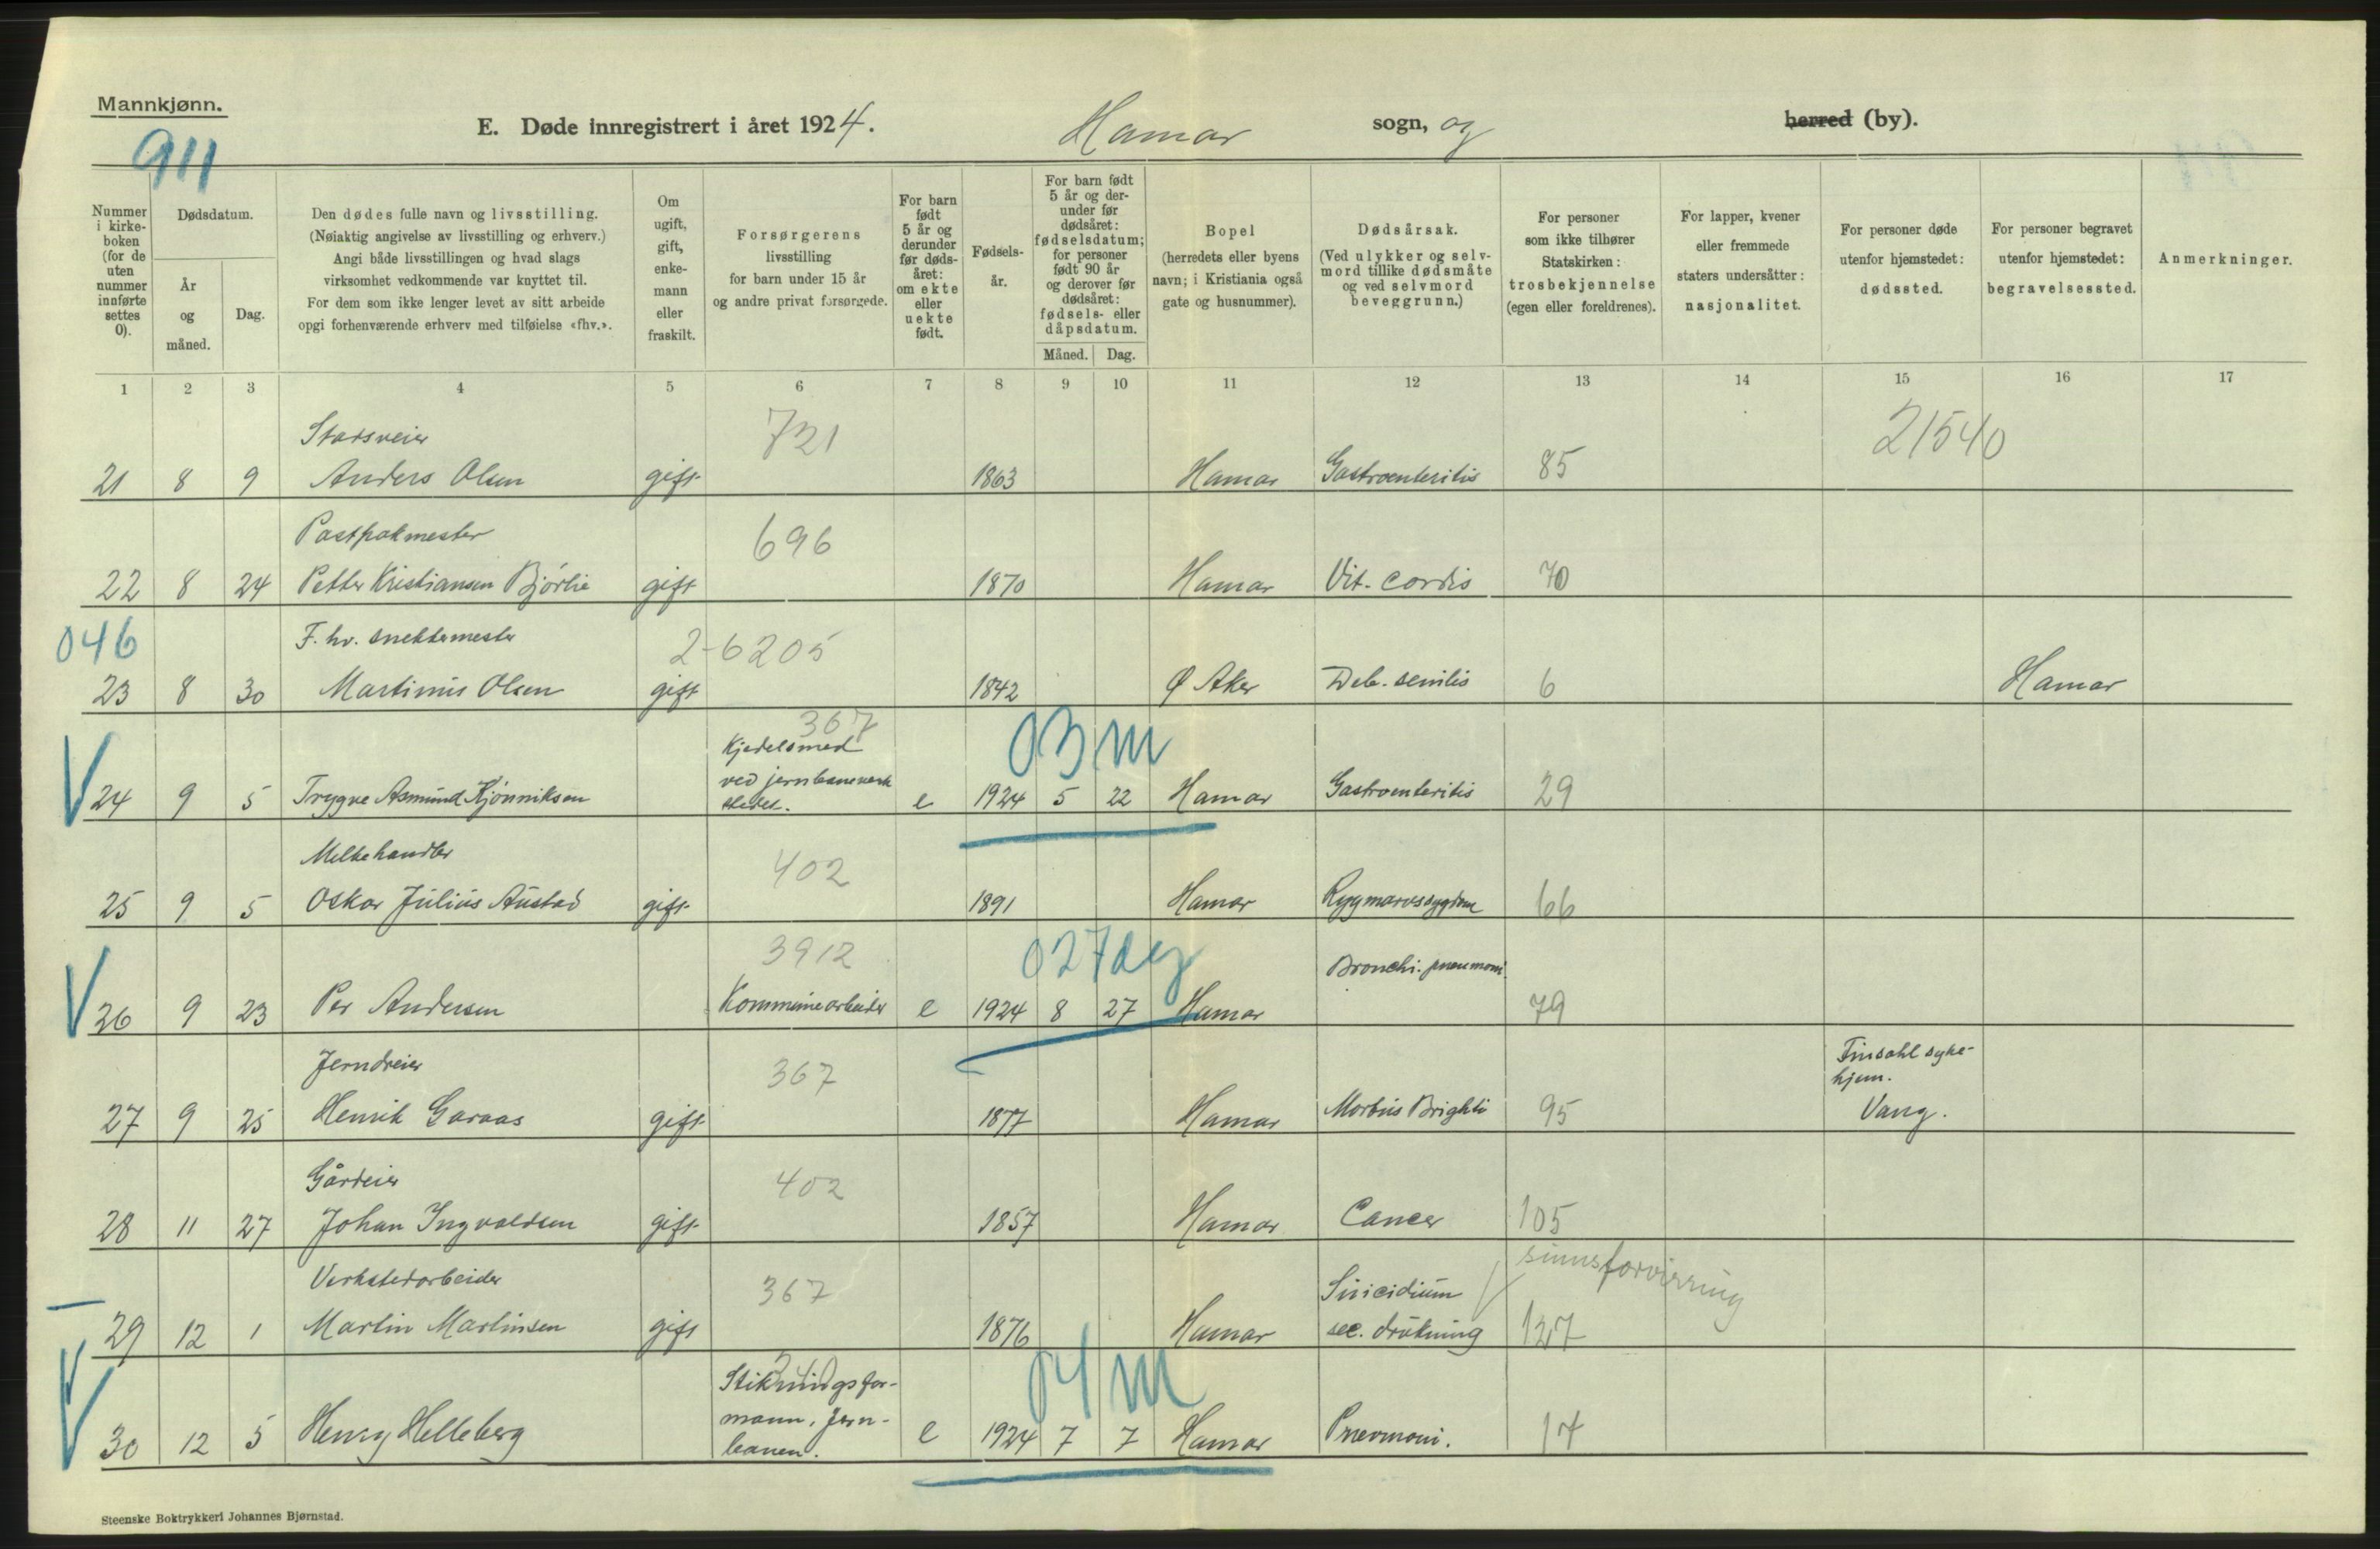 Mannkjønn.
911
E. Døde innregistrert i året 1924. Hamar sogn, og herred (by).
Nummer i kirkeboken (for de uten nummer innførte settes 0).
Dødsdatum.
År og måned.
Dag.
Den dødes fulle navn og livsstilling.
(Nøiaktig angivelse av livsstilling og erhverv.)
Angi både livsstillingen og hvad slags
virksomhet vedkommende var knyttet til.
For dem som ikke lenger levet av sitt arbeide
opgi forhenværende erhverv med tilføielse «fhv.».
Om ugift, gift, enkemann eller fraskilt.
Forsørgerens
livsstilling
for barn under 15 år
og andre privat forsørgede.
For barn født 5 år og derunder før dødsåret: om ekte eller uekte født.
Fødselsår.
For barn født 5 år og derunder før dødsåret: fødselsdatum; for personer født 90 år og derover før dødsåret: fødsels- eller dåpsdatum.
Måned. Dag.
Bopel
(herredets eller byens
navn; i Kristiania også
gate og husnummer).
Dødsårsak.
(Ved ulykker og selvmord tillike dødsmåte og ved selvmord beveggrunn.)
For personer
som ikke tilhører
Statskirken:
trosbekjennelse
(egen eller foreldrenes).
For lapper, kvener
eller fremmede
staters undersåtter:
nasjonalitet.
For personer døde
utenfor hjemstedet:
dødssted.
For personer begravet
utenfor hjemstedet:
begravelsessted.
Anmerkninger.
1 2 3 4 5 6 7 8 9 10 11 12 13 14 15 16 17
Stadsveier 721 21540
21 8 9 Anders Olsen gift 1863 Hamar Gastroenteritis 85
Postpakmester 696
22 8 24 Petter Kristiansen Bjørlie gift 1870 Hamar Vit. cordis 70
046 F. hv. snekkermester 2-6205
23 8 30 Martinius Olsen gift 1842 Ø Aker Deb. senilis 6 Hamar
367 03m
Kjedelsmed
ved jernbaneverk
stedet.
24 9 5 Trygve Asmund Kjønniksen e 1924 5 22 Hamar Gastroenteritis 29
Melkehandler 402
25 9 5 Oskar Julius Austad gift 1891 Hamar Rygmarvssygdom 66
3912 027dg Bronchi. pneumoni
26 9 23 Per Andersen Kommunearbeider e 1924 8 27 Hamar 79
Jerndreier 367 Finsahl syke-
hjem.
27 9 25 Henrik Garaas gift 1877 Hamar Morbus Brighti 95 Vang.
Gårdeier 402
28 11 27 Johan Ingvaldsen gift 1857 Hamar Cancer 105
Verkstedarbeider 367 Suicidium sinnsforvirring
29 12 1 Martin Martinsen gift 1876 Hamar sec. drukning 127
04m
Stikningsfor-
mann, Jern-
banen.
30 12 5 Henry Helleberg e 1924 7 7 Hamar Pnevmoni. 17
Steenske Boktrykkeri Johannes Bjørnstad.